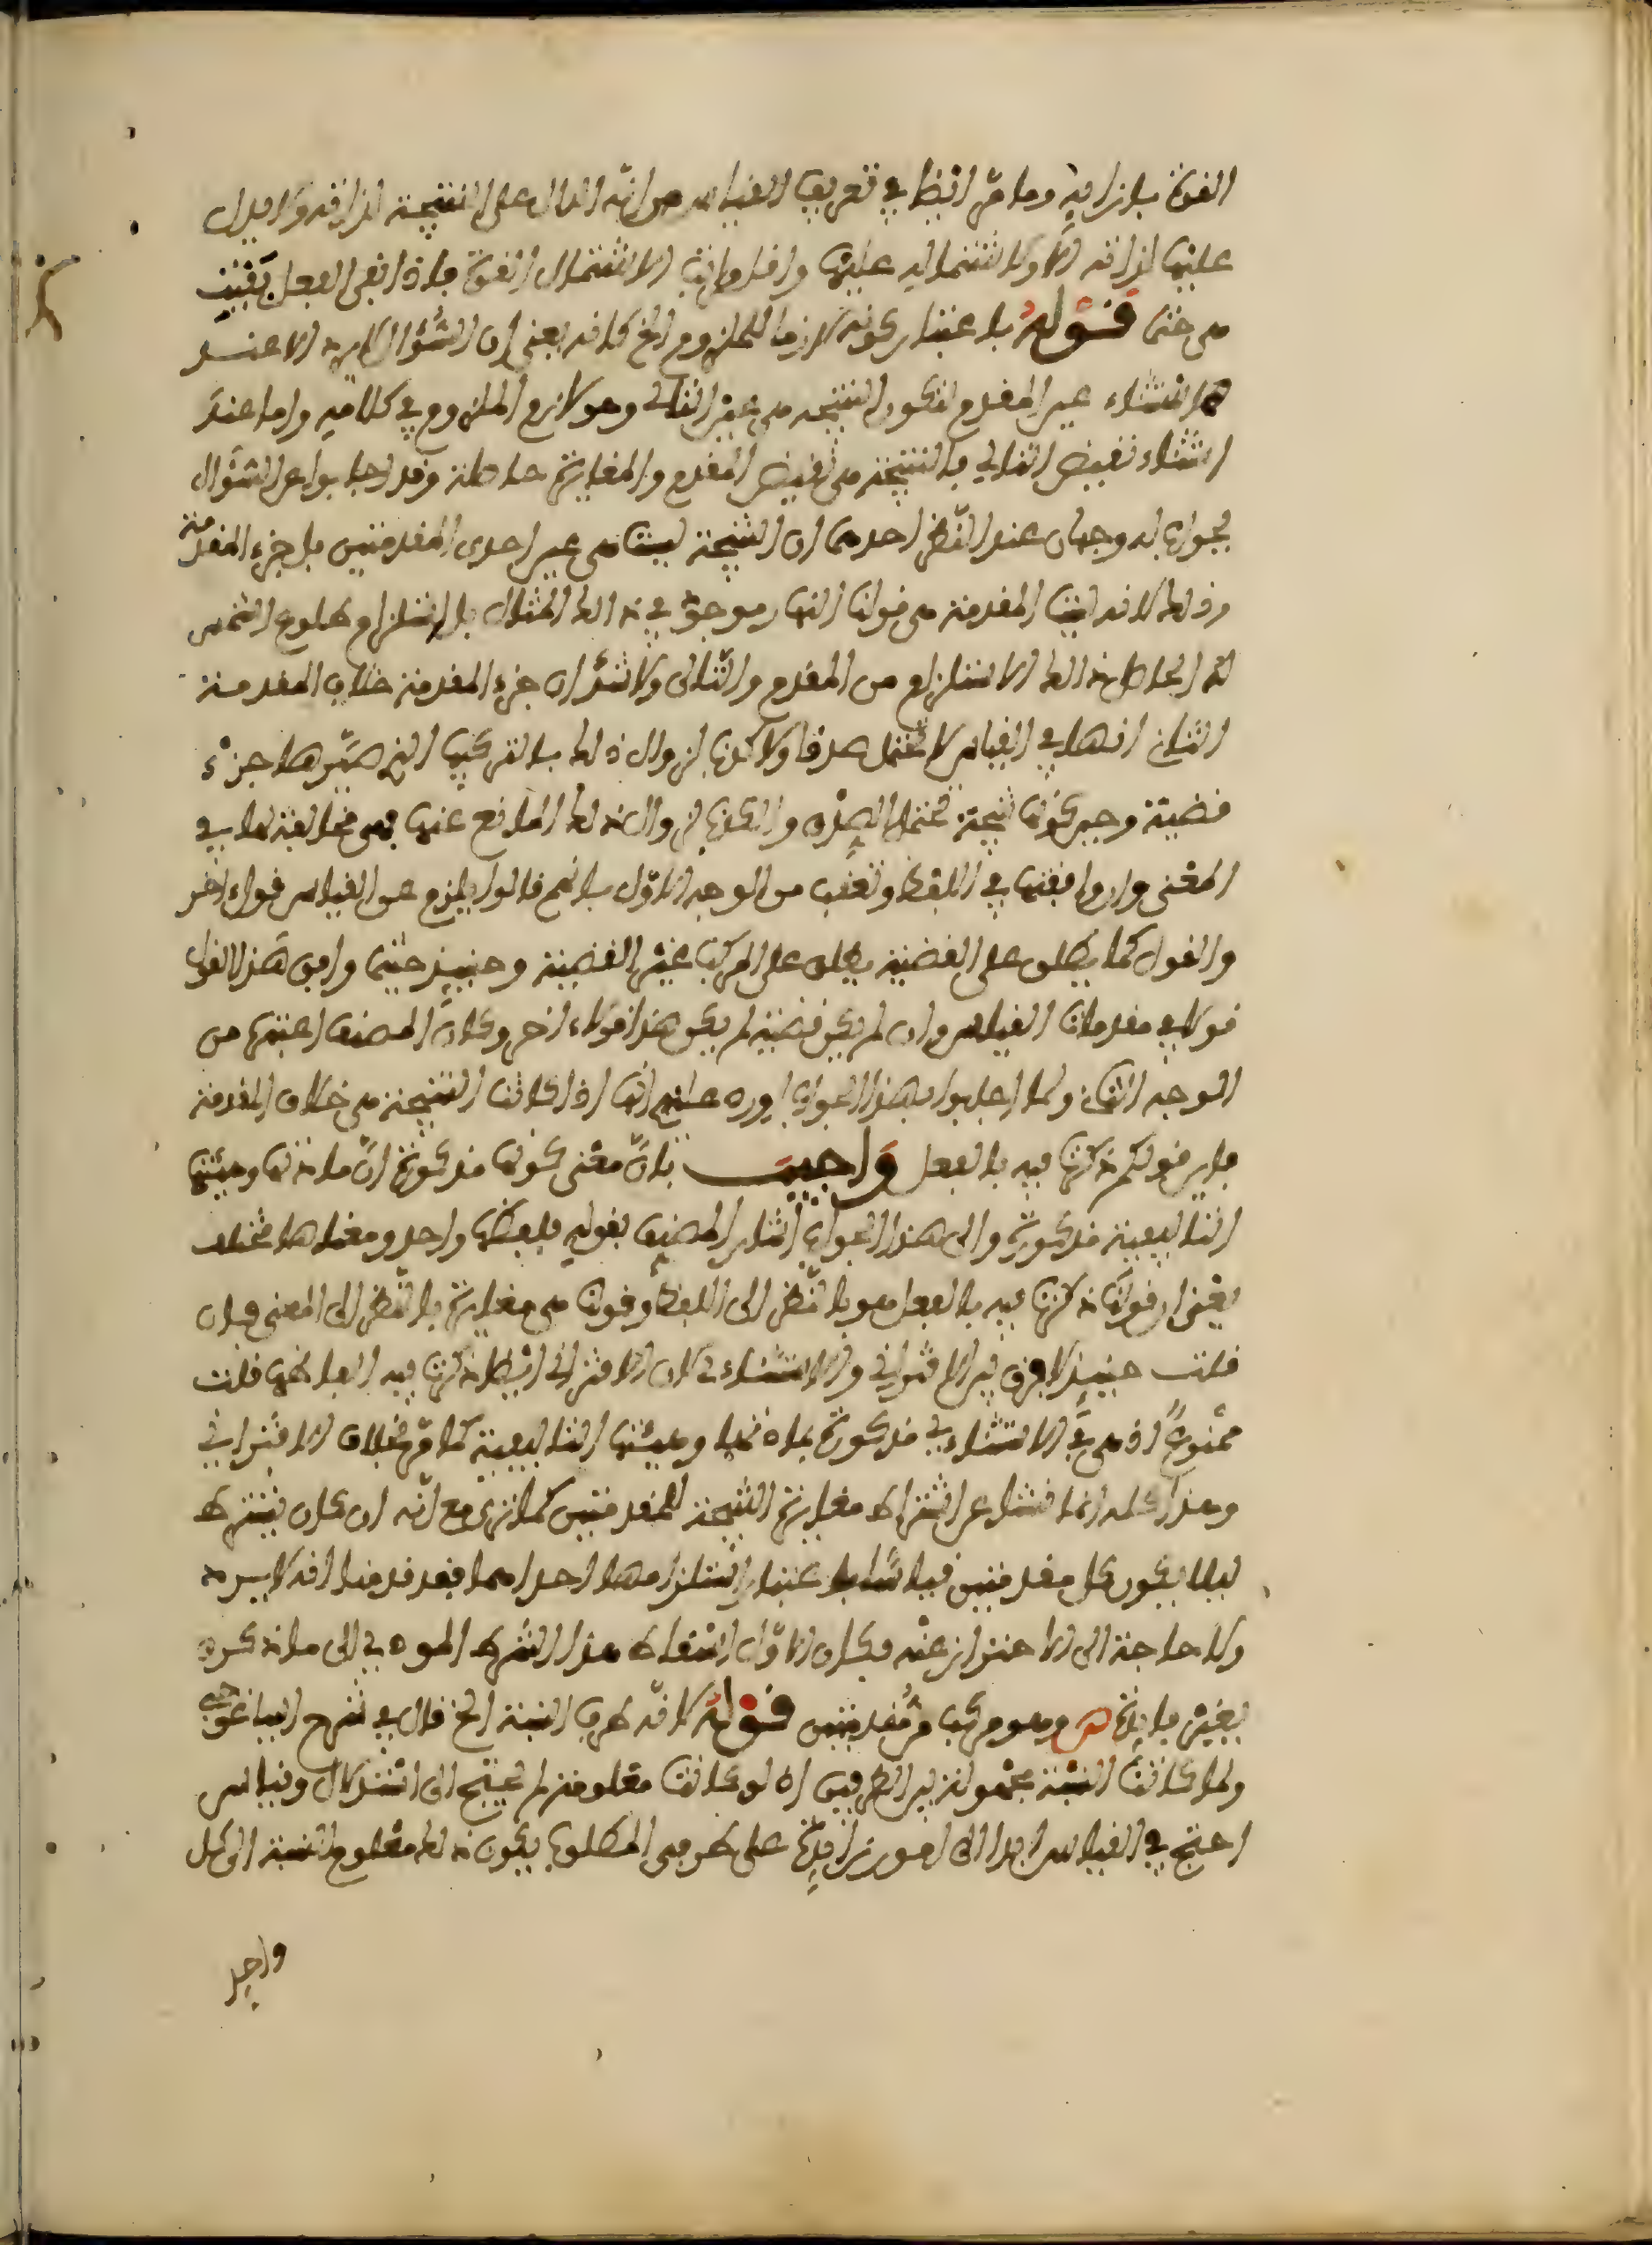 القوة بارادية وما مر ايضا في تعريف القياس من انه الدال على النتيجة لذاته ولا يدل
عليها لذاته الا ولاشتماله عليها واقل مراتب الاشتمال القوة فاذا انتفى الفعل بقيت
هي حتما قوله باعتبار كونه لازما للملزوم الخ كانه يعني ان السؤال لا يرد الا عند
استثناء عين المقدم لتكون النتيجة هي عين التالي وهو لازم الملزوم في كلامه واما عند
استثناء نقيض التالي فالنتيجة هي نقيض المقدم والمغايرة حاصلة وقد اجابوا عن السؤال
بجواب له وجهان عند النظر احدهما ان النتيجة ليست هي عين احدى المقدمتين بل جزء المقدمة
وذلك لانه ليست المقدمة هي قولنا النهار موجود في ذلك المثال بل استلزام طلوع الشمس
له الحاصل ذلك الاستلزام من المقدم والتالي ولا شك ان جزء المقدمة خلاف المقدمة
الثاني انها في القياس لا تحتمل صدقا ولا كذبا لزوال ذلك بالتركيب الذي صيرها جزء
قضية وحين كونها نتيجة تحتمل الصدق والكذب لزوال ذلك المانع عنها فهي مخالفة لها في
المعنى وان وافقتها في اللفظ وتعقب من الوجه الاول بانهم قالوا يلزم عن القياس قول اخر
والقول كما يطلق على القضية يطلق على المركب غير القضية وحينئذ حيثما وافق هذا القول
قولا في مقدمات القياس وان لم يكن قضية لم يكن هذا قولا اخر وكان المصنف اعتبر من
الوجه الثاني ولما اجابوا بهذا الجواب اورد عليهم انها اذا كانت النتيجة هي خلاف المقدمة
فاين قولكم ذكرها فيه بالفعل واجيب بان معنى كونها مذكورة ان مادتها وهيئتها
التاليفية مذكورة والى هذا الجواب اشار المصنف بقوله فلفظها واحد ومعناها مختلف
يعني ان قولنا ذكرها فيه بالفعل هو بالنظر الى اللفظ وقولنا هي مغايرة بالنظر الى المعنى فان
قلت حينئذ لا فرق بين الاقتراني والاستثنائي لان الاقتراني ايضا ذكرها فيه الفاظها قلت
ممنوع اذ هي في الاستثنائي مذكورة بمادتها وهيئتها التاليفية كما مر بخلاف الاقتراني
وهذا كله انما نشأ عن اشتراط مغايرة النتيجة للمقدمتين كما ترى مع انه ان كان يشترط
ليلا يكون كل مقدمتين قياسا باعتبار استلزامهما احداهما فقد قدمنا انه لا يرد
ولا حاجة الى الاحتراز عنه فكان الاول اسقاط هذا الشرط المودي الى ما ذكره
لغير فايدة ص وهو مركب من مقدمتين قوله لانه طرفا النسبة الخ قال في شرح ايساغوجي
ولما كانت النسبة مجهولة بين الطرفين اذ لو كانت معلومة لم تحتج الى استدلال وقياس
احتيج في القياس ابدا الى امور زايدة على طرفي المطلوب يكون ذلك معلوم النسبة الى كل
واحد